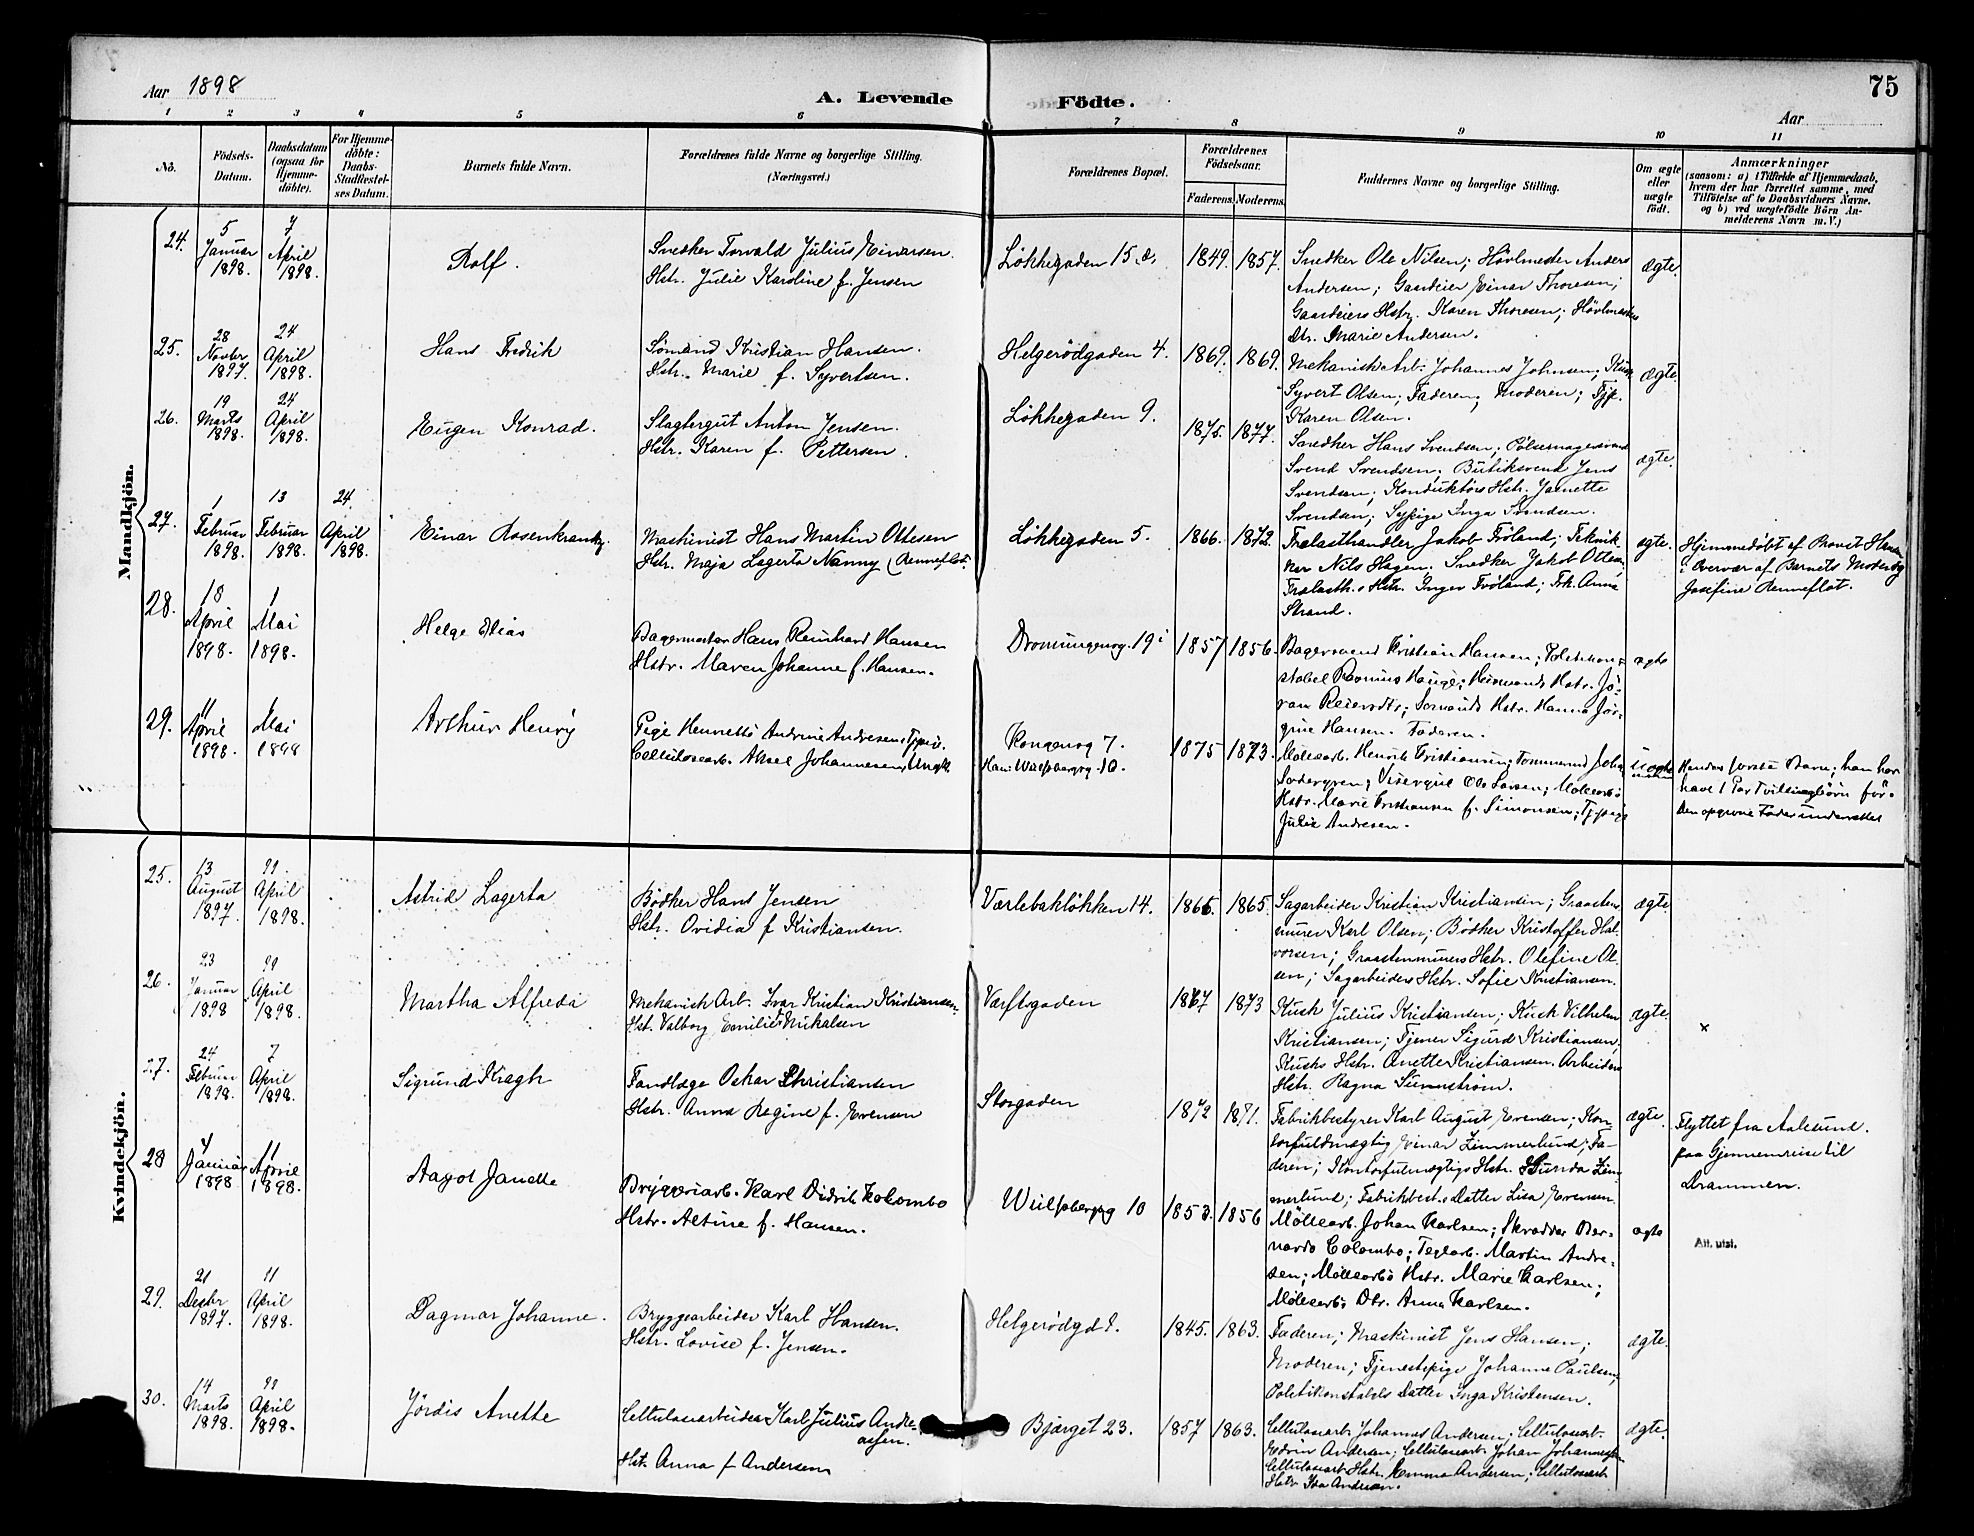 75
Aar 1898
A. Levende Födte.
Aar
1 2 3 4 5 6 7 8 9 10 11
No.
Födsels-
Datum.
Daabsdatum
(ogsaa for
Hjemme-
döbte).
For Hjemme-
döbte:
Daabs-
Stadfæstel-
ses Datum.
Barnets fulde Navn.
Forældrenes fulde Navne og borgerlige Stilling.
(Næringsvei.)
Forældrenes Bopæl.
Forældrenes
Födselsaar.
Faderens. Moderens.
Faddernes Navne og borgerlige Stilling.
Om ægte
eller
uægte
födt.
Anmærkninger
(saasom: a) i Tilfælde af Hjemmedaab,
hvem der har forrettet samme, med
Tilföielse af to Daabsvidners Navne,
og b) ved uægtefödte Börn An-
melderens Navn m. V.)
Mandkjön.
24.
5
Januar
1898.
7
April
1898.
Rolf.
Snedker Torvald Julius Einarsen.
Hstr. Julie Karoline f. Jensen
Løkkegaden 15.
1849. 1857.
Snedker Ole Nilsen; Høvlmester Anders
Andersen; Gaardeier Einar Thoresen;
Gaardeiers Hstr. Karen Thoresen; Høvlmesters
Dtr. Marie Andersen.
ægte.
25.
28
Novbr
1897.
24
April
1898.
Hans Fredrik
Sømand Kristian Hansen.
Hstr. Marie f. Syvertsen.
Helgerödgaden 4.
1869. 1869.
Mekanisk Arb. Johannes Johnsen; Kusk
Syvert Olsen; Faderen; Moderen; Tjp.
Karen Olsen.
ægte.
26.
19
Marts
1898.
24
April
1898.
Eugen Konrad.
Slagtergut Anton Jensen.
Hstr. Karen f. Pettersen.
Løkkegaden 9.
1875. 1877.
Snedker Hans Svendsen; Pölsemagersvend
Svend Svendsen; Butiksvend Jens
Svendsen; Konduktørs Hstr. Janette
Svendsen; Sypige Inga Svendsen.
ægte.
27.
1
Februar
1898.
13
Februar
1898.
24.
April
1898.
Einar Rosenkrantz.
Maskinist Hans Martin Ottesen
Hstr. Maja Lagerta Nanny (Renneflot.
Løkkegaden 5.
1866. 1872.
Trælasthandler Jakob Fröland; Teknik-
ker Nils Hagen; Snedker Jakob Ottesen;
Trælasth.s Hstr. Inger Fröland; Frk. Anna
Strand.
ægte.
Hjemmedøbt af Provst Hansen
i Overvær af Barnets Moder og
Josefine Renneflot.
28.
18
April
1898.
1
Mai
1898.
Helge Elias
Bagermester Hans Reinhard Hansen
Hstr. Maren Johanne f. Hansen.
Dronningensg. 19
1857 1856.
Bagersvend Kristian Hansen; Politikon-
stabel Rasmus Hauge; Hstr. Jö-
Sömands Hstr. Hanna Jör-
gine Hansen. Faderen.
ægte
29.
11
April
1898.
1
Mai
1898
Arthur Henry
Pige Henrette Andrine Andresen, Tjpie.
Cellulosearb. Aksel Johannesen, Ungk.
Kongensg 7.
Han: Wulfsbergsg. 10.
1875 1873.
Møllearb. Henrik Kristiansen; Tömmermd John
Södergren; Visergut Ole Larsen; Møllearbs
Hstr. Marie Kristiansen f. Simonsen; Tjpige
Julie Andresen.
uægte
Hendes første Barn; han har
havt 1 Par Tvillingbörn før.
Den opgivne Fader underrettet
Kvindekjön.
25.
13
August
1897.
11
April
1898.
Astrid Lagerta
Bødker Hans Jensen
Hstr. Ovidia f Kristiansen.
Værlebakløkken 14.
1866. 1865.
Sagarbeider Kristian Kristiansen; Graasten-
murer Karl Olsen; Bødker Kristoffer Hal-
vorsen; Graastenmurers Hstr. Olefine Ol-
sen; Sagarbeiders Hstr. Sofie Kristiansen.
ægte.
26.
23
Januar
1898
11
April
1898.
Martha Alfreda
Mekanisk Arb. Ivar Kristian Kristiansen.
Hst. Valborg Emilie Mikalsen
Værftsgaden
1867 1873
Kusk Julius Kristiansen; Kusk Vilhelm
Kristiansen; Tjener Sigurd Kristiansen;
Kusks Hstr. Anette Kristiansen. Arbeiders
Hstr. Ragna Sunnström.
ægte.
x
27.
24
Februar
1898.
7
April
1898.
Sigrund Kragh
Tandlæge Oskar Christiansen
Hstr. Anna Regine f. Evensen
Storgaden
1872 1871.
Fabrikbestyrer Karl August Evensen; Kon-
torfuldmægtig Einar Zimmerlund; Fa-
deren; Kontorfulmægtigs Hstr. Gunda Zim-
merlund; Fabrikbest.s Datter Lisa Evensen
ægte.
Flyttet fra Aalesund.
paa Gjennemreise til
Drammen.
28
4
Januar
1898
11
April
1898.
Aagot Janette
Bryggeriarb. Karl Didrik Kolombo
Hstr. Altine f. Hansen.
Wulfsbergsg 10
1853. 1856
Møllearb. Johan Karlsen; Skrædder Ber-
nardo Colombo; Teglarb. Martin Andre-
sen; Møllearbs Hstr. Marie Karlsen;
Møllearbs Dtr. Anna Karlsen.
ægte
Att. utst.
29.
21
Decbr
1897.
11
April
1898.
Dagmar Johanne.
Bryggearbeider Karl Hansen.
Hstr. Lovise f. Jensen.
Helgerödgd 1.
1845. 1863.
Faderen; Maskinist Jens Hansen;
Moderen; Tjenestepige Johanne Paulsen;
Politikonstabels Datter Inga Kristensen.
ægte.
30.
14
Marts
1898.
11
April
1898.
Jördis Anette
Cellulosearbeider Karl Julius Andre-
assen.
Hstr. Anna f Andersen
Bjerget 23.
1857 1863.
Cellulosearb. Johannes Andersen; Cellulosearb.
Edvin Andersen; Cellulosearb. Johan Johannessen
Cellulosearb. Hstr. Emma Andersen; Cellulosearb
Hstr. Ida Andersen.
ægte.